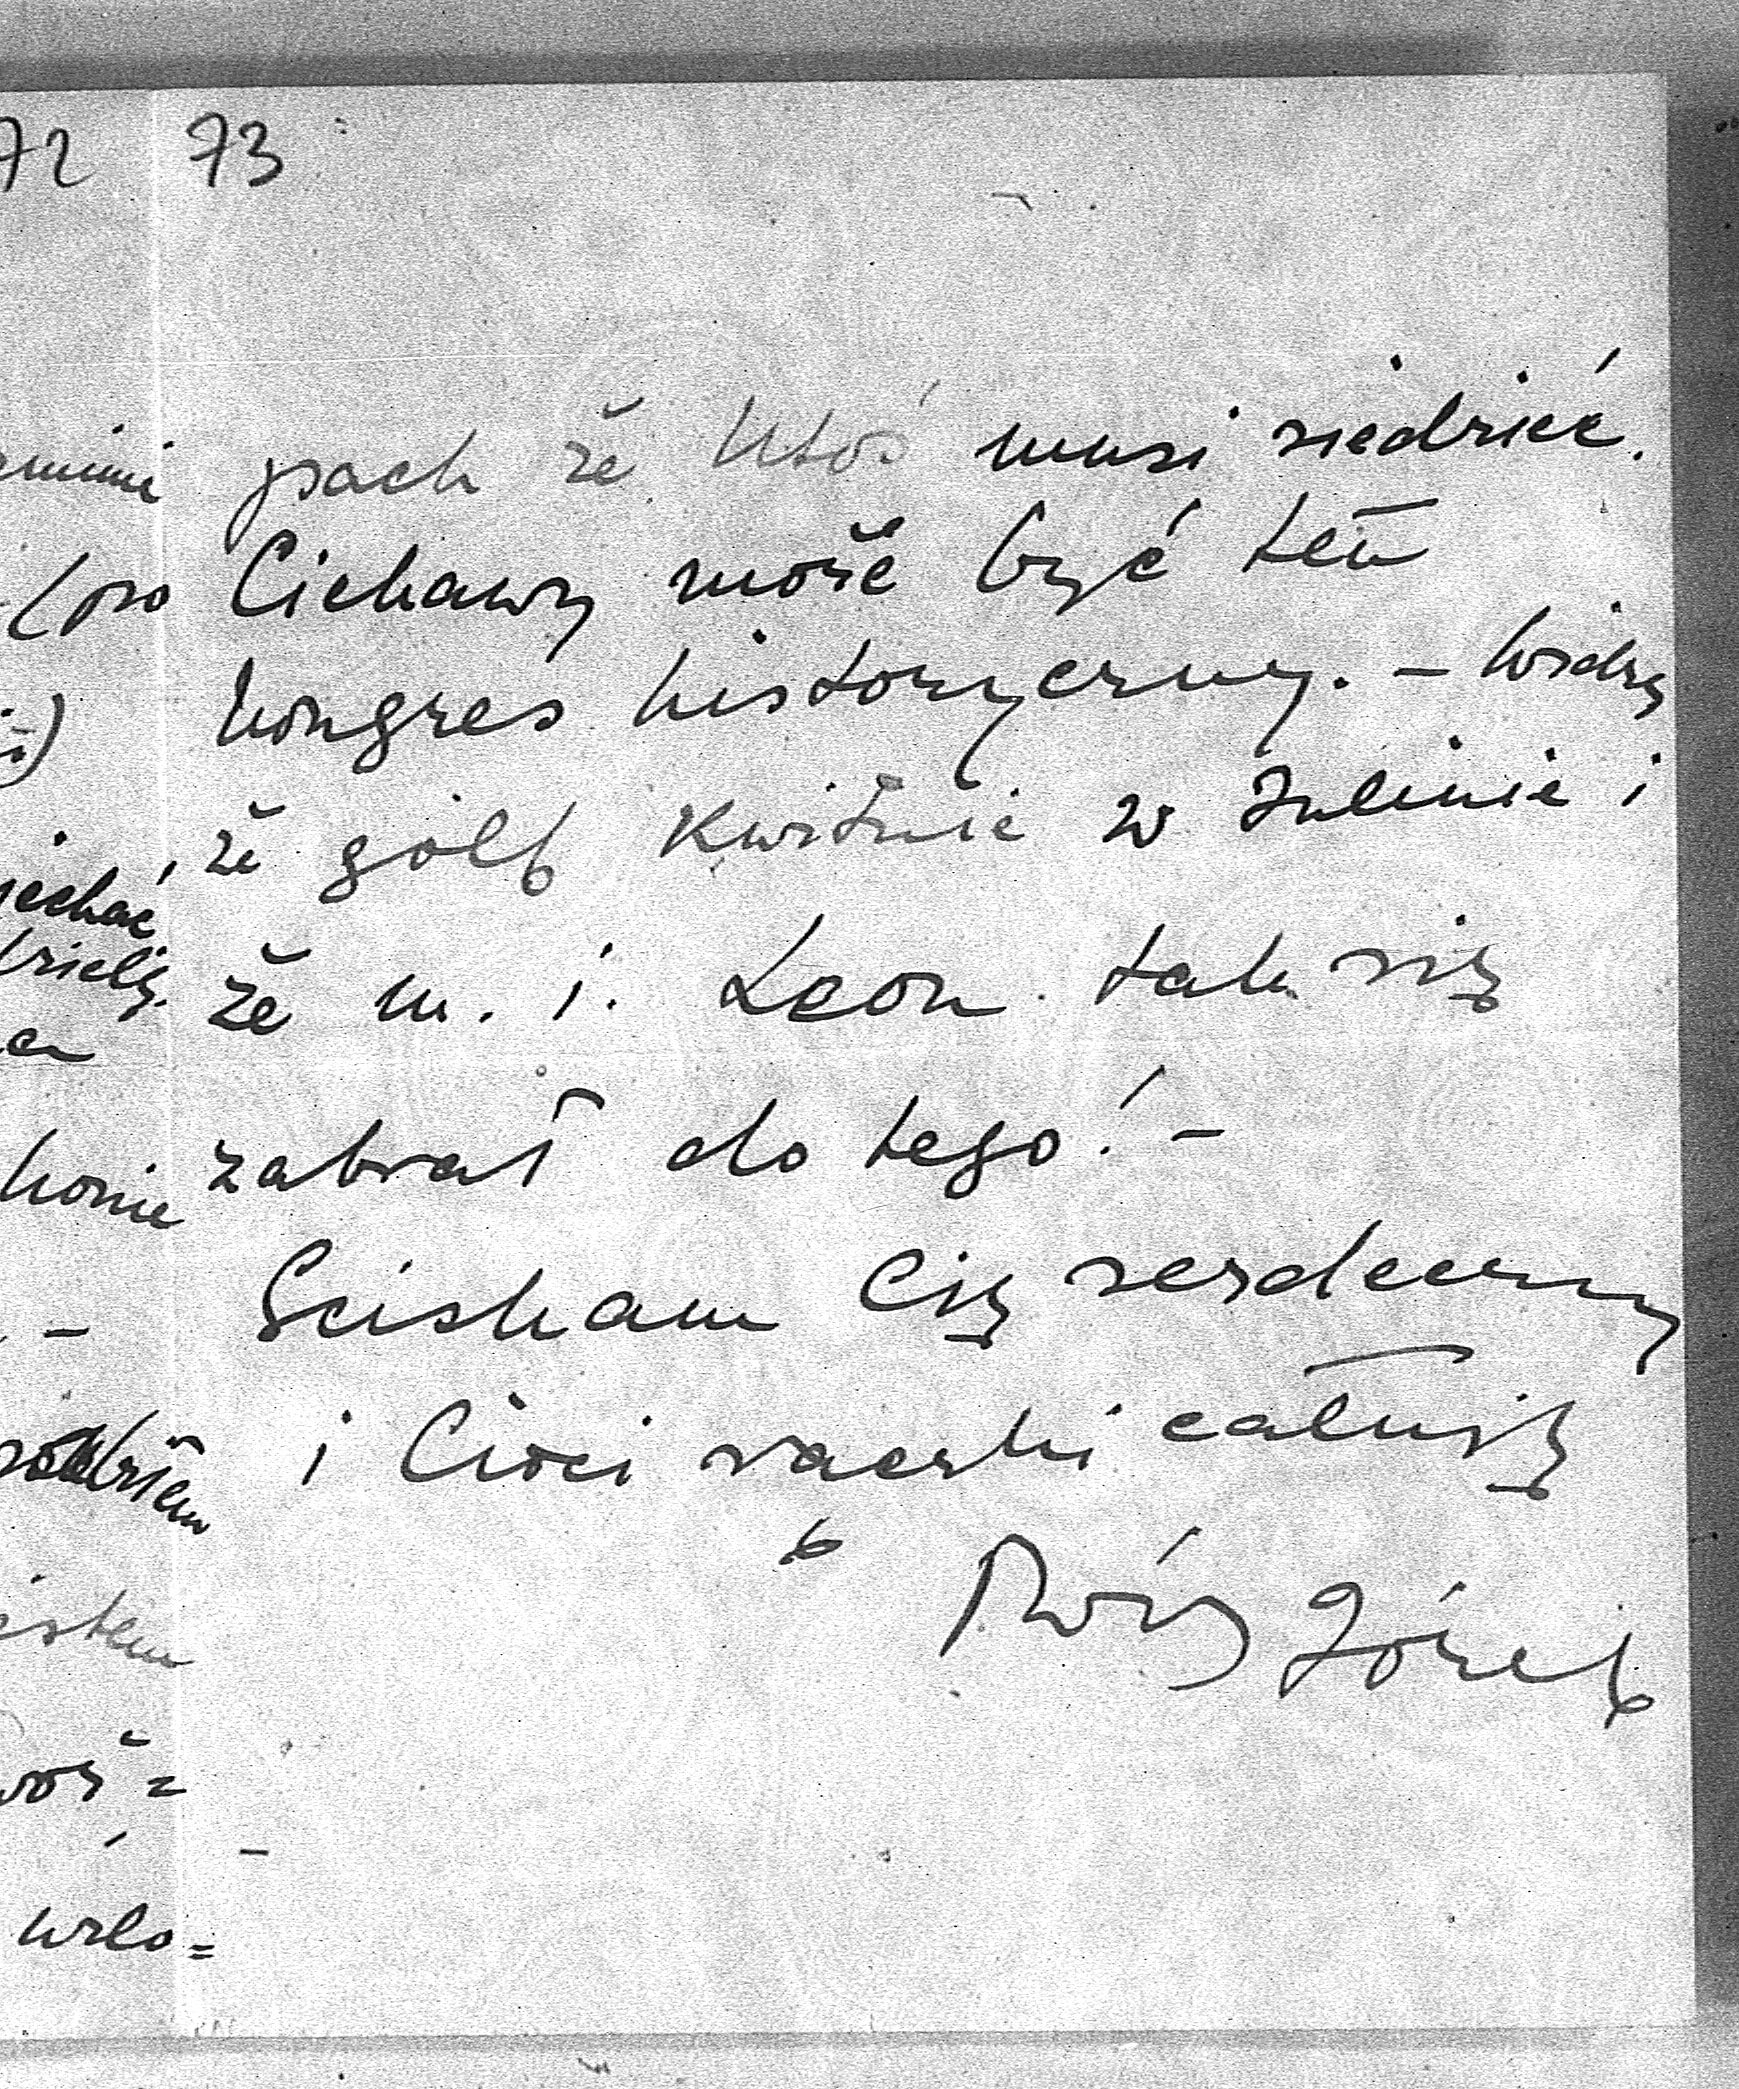 72 73
pach że Ktoś musi siedzieć.
Ciekawy może być ten
kongres historyczny. – Widzę
że golf Kwitnie w Julinie i
że m. i. Leon tak się
zabrał do tego! –
Ściskam Cię serdeczny
i Cioci rączki całuję
Twój Józef
(po
jechać
konie
estem